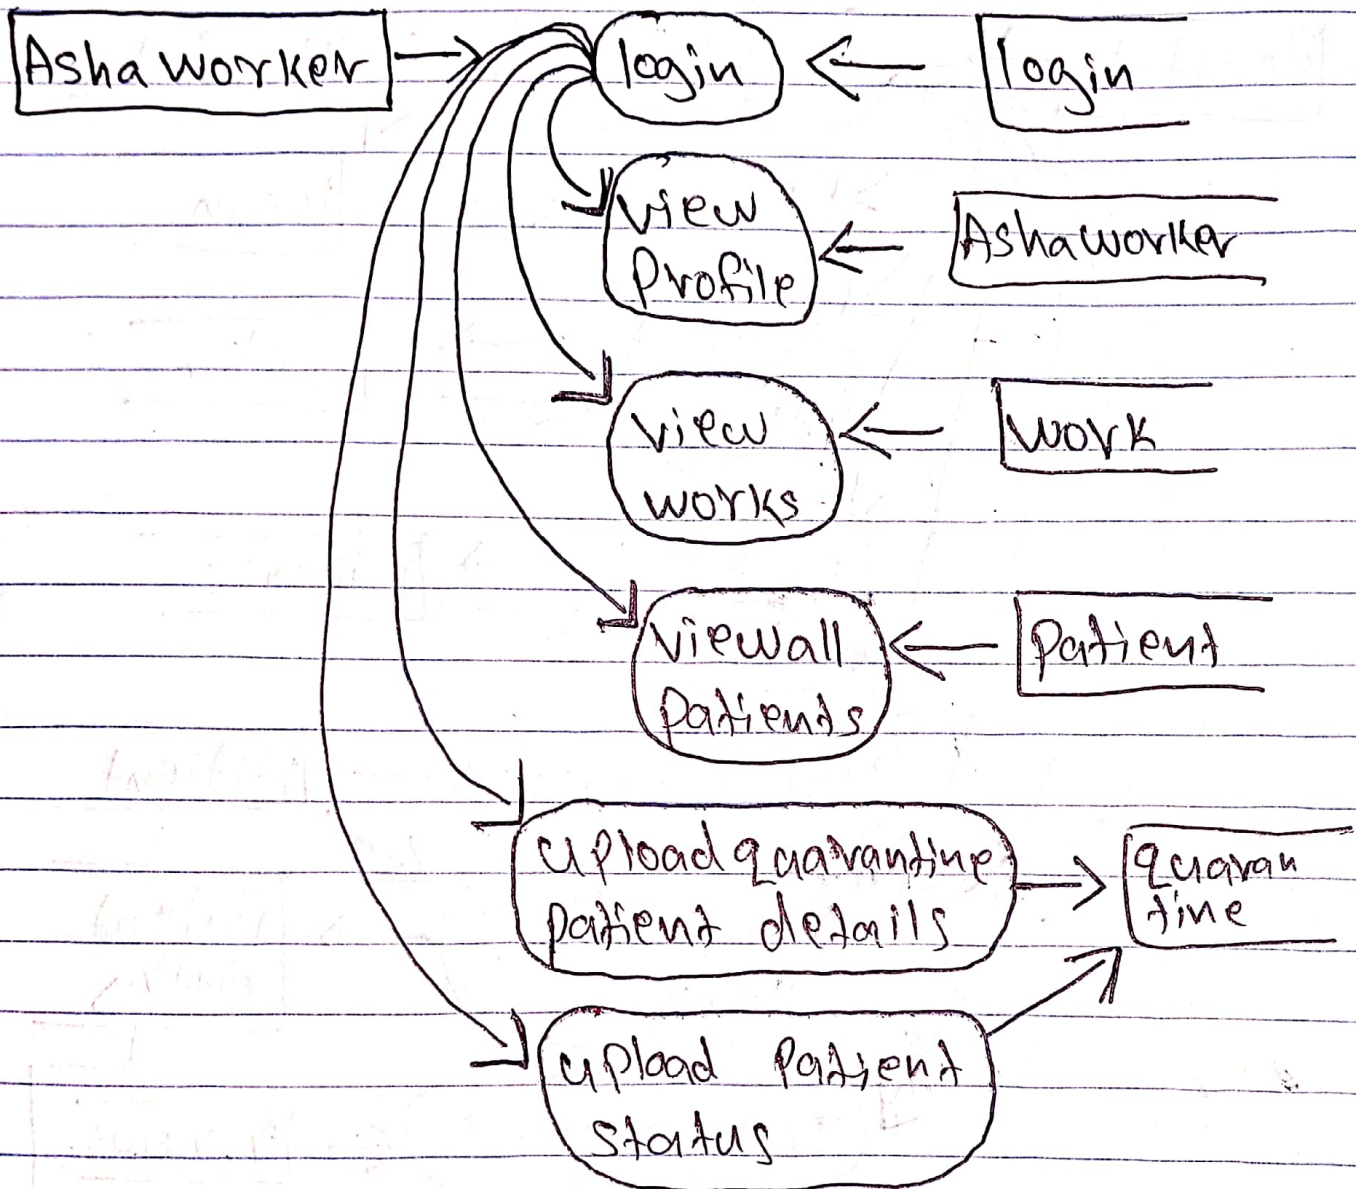 Asha worker
login
login
view
Profile
Ashaworker
view
works
work
viewall
patients
patient
upload quarantine
patient details
quaran
tine
upload patient
status